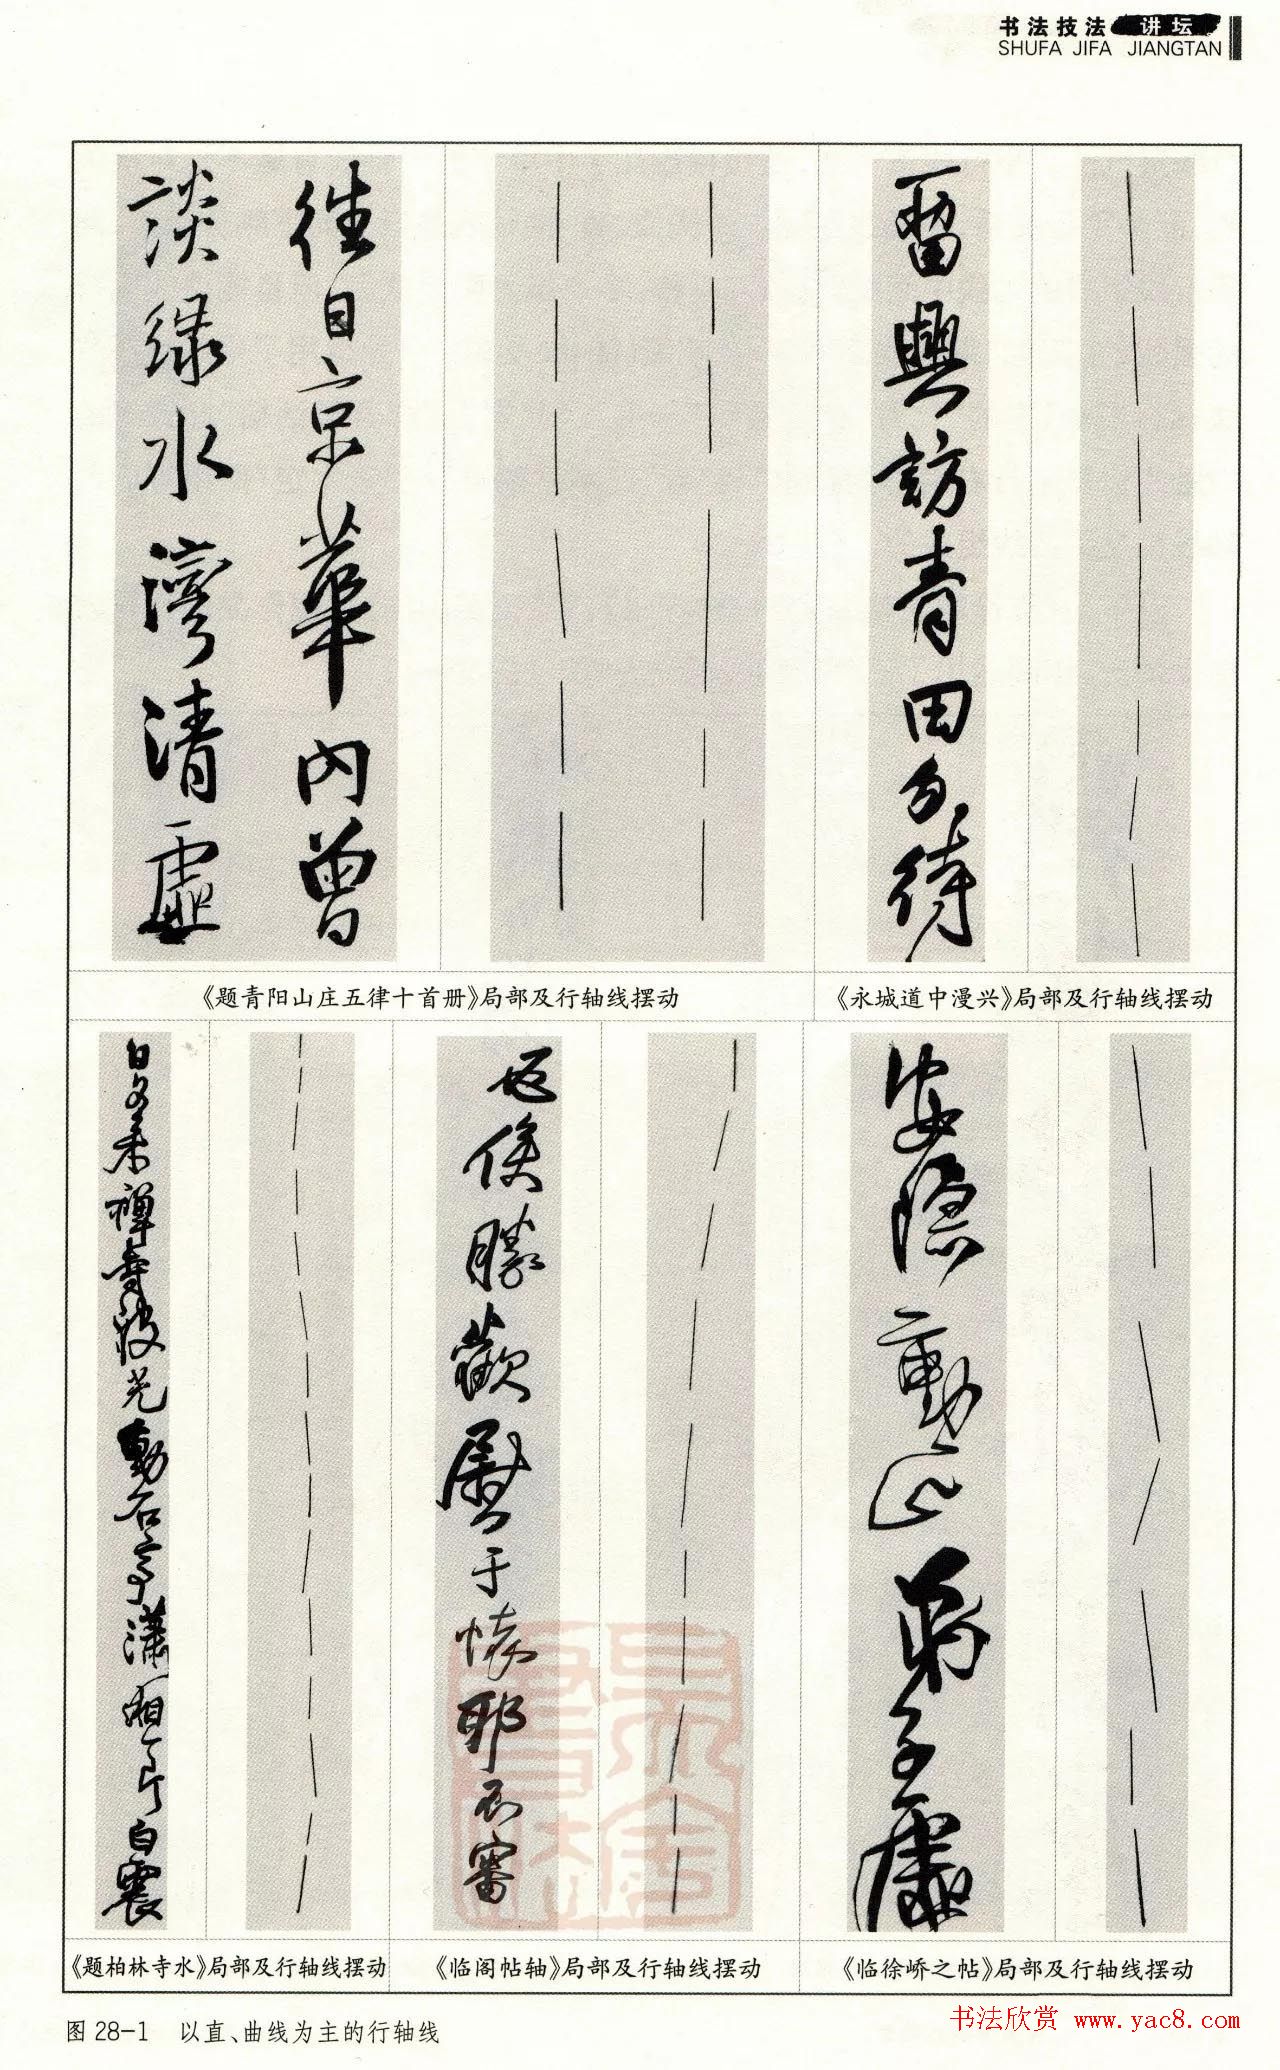 书法技法 讲坛
SHUFA JIFA JIANGTAN
往日京華内曾
談緑水灣清虛
留興訪青田勿待
《题青阳山庄五律十首册》局部及行轴线摆动
《永城道中漫兴》局部及行轴线摆动
日夕来禪寺波光動石亭瀟湘一片白震
安隱動止弟子虔
《题柏林寺水》局部及行轴线摆动
《临阁帖轴》局部及行轴线摆动
《临徐峤之帖》局部及行轴线摆动
图 28-1 以直、曲线为主的行轴线
书法欣赏 www.yac8.com